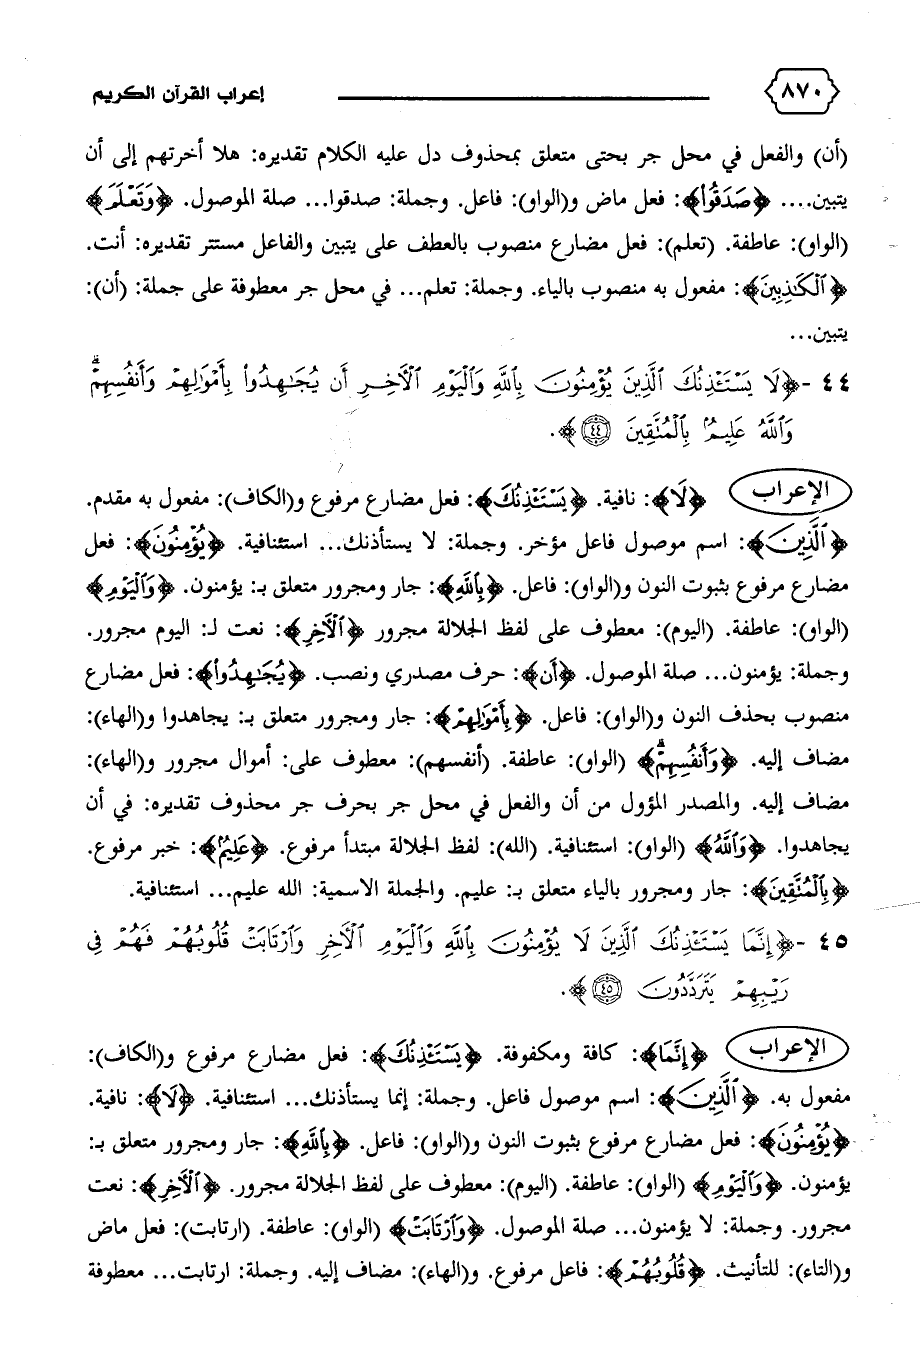 ٨٧٠ إعراب القرآن الكريم
(أن) والفعل في محل جر بحتى متعلق بمحذوف دل عليه الكلام تقديره: هلا أخرتهم إلى أن
يتبين.... ﴿صَدَقُواْ﴾: فعل ماض و(الواو): فاعل. وجملة: صدقوا... صلة الموصول. ﴿وَتَعْلَمَ﴾
(الواو): عاطفة. (تعلم): فعل مضارع منصوب بالعطف على يتبين والفاعل مستتر تقديره: أنت.
﴿ٱلْكَٰذِبِينَ﴾: مفعول به منصوب بالياء. وجملة: تعلم... في محل جر معطوفة على جملة: (أن):
يتبين...
٤٤ -﴿لَا يَسْتَـْٔذِنُكَ ٱلَّذِينَ يُؤْمِنُونَ بِٱللَّهِ وَٱلْيَوْمِ ٱلْأَخِرِ أَن يُجَٰهِدُواْ بِأَمْوَٰلِهِمْ وَأَنفُسِهِمْۗ
وَٱللَّهُ عَلِيمٌۢ بِٱلْمُتَّقِينَ ٤٤﴾.
الإعراب ﴿لَا﴾: نافية. ﴿يَسْتَـْٔذِنُكَ﴾: فعل مضارع مرفوع و(الكاف): مفعول به مقدم.
﴿ٱلَّذِينَ﴾: اسم موصول فاعل مؤخر. وجملة: لا يستأذنك... استئنافية. ﴿يُؤْمِنُونَ﴾: فعل
مضارع مرفوع بثبوت النون و(الواو): فاعل. ﴿بِٱللَّهِ﴾: جار ومجرور متعلق بـ: يؤمنون. ﴿وَٱلْيَوْمِ﴾
(الواو): عاطفة. (اليوم): معطوف على لفظ الجلالة مجرور ﴿ٱلْأَخِرِ﴾: نعت لـ: اليوم مجرور.
وجملة: يؤمنون... صلة الموصول. ﴿أَن﴾: حرف مصدري ونصب. ﴿يُجَٰهِدُواْ﴾: فعل مضارع
منصوب بحذف النون و(الواو): فاعل. ﴿بِأَمْوَٰلِهِمْ﴾: جار ومجرور متعلق بـ: يجاهدوا و(الهاء):
مضاف إليه. ﴿وَأَنفُسِهِمْۗ﴾ (الواو): عاطفة. (أنفسهم): معطوف على: أموال مجرور و(الهاء):
مضاف إليه. والمصدر المؤول من أن والفعل في محل جر بحرف جر محذوف تقديره: في أن
يجاهدوا. ﴿وَٱللَّهُ﴾ (الواو): استئنافية. (الله): لفظ الجلالة مبتدأ مرفوع. ﴿عَلِيمٌۢ﴾: خبر مرفوع.
﴿بِٱلْمُتَّقِينَ﴾: جار ومجرور بالياء متعلق بـ: عليم. والجملة الاسمية: الله عليم... استئنافية.
٤٥ -﴿إِنَّمَا يَسْتَـْٔذِنُكَ ٱلَّذِينَ لَا يُؤْمِنُونَ بِٱللَّهِ وَٱلْيَوْمِ ٱلْأَخِرِ وَٱرْتَابَتْ قُلُوبُهُمْ فَهُمْ فِى
رَيْبِهِمْ يَتَرَدَّدُونَ ٤٥﴾.
الإعراب ﴿إِنَّمَا﴾: كافة ومكفوفة. ﴿يَسْتَـْٔذِنُكَ﴾: فعل مضارع مرفوع و(الكاف):
مفعول به. ﴿ٱلَّذِينَ﴾: اسم موصول فاعل. وجملة: إنما يستأذنك... استئنافية. ﴿لَا﴾: نافية.
﴿يُؤْمِنُونَ﴾: فعل مضارع مرفوع بثبوت النون و(الواو): فاعل. ﴿بِٱللَّهِ﴾: جار ومجرور متعلق بـ:
يؤمنون. ﴿وَٱلْيَوْمِ﴾ (الواو): عاطفة. (اليوم): معطوف على لفظ الجلالة مجرور. ﴿ٱلْأَخِرِ﴾: نعت
مجرور. وجملة: لا يؤمنون... صلة الموصول. ﴿وَٱرْتَابَتْ﴾ (الواو): عاطفة. (ارتابت): فعل ماض
و(التاء): للتأنيث. ﴿قُلُوبُهُمْ﴾: فاعل مرفوع. و(الهاء): مضاف إليه. وجملة: ارتابت... معطوفة